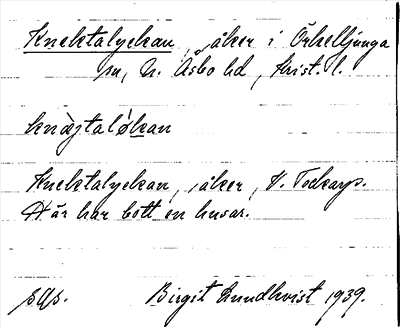 Knektalyckan, åker i Örkelljunga
sn, N. Åsbo hd, Krist. l.
knæ̀jtaløkan
Knektalyckan, åker, V. Tockarp.
Här har bott en husar.
sgs. Birgit Lundkvist 1939.